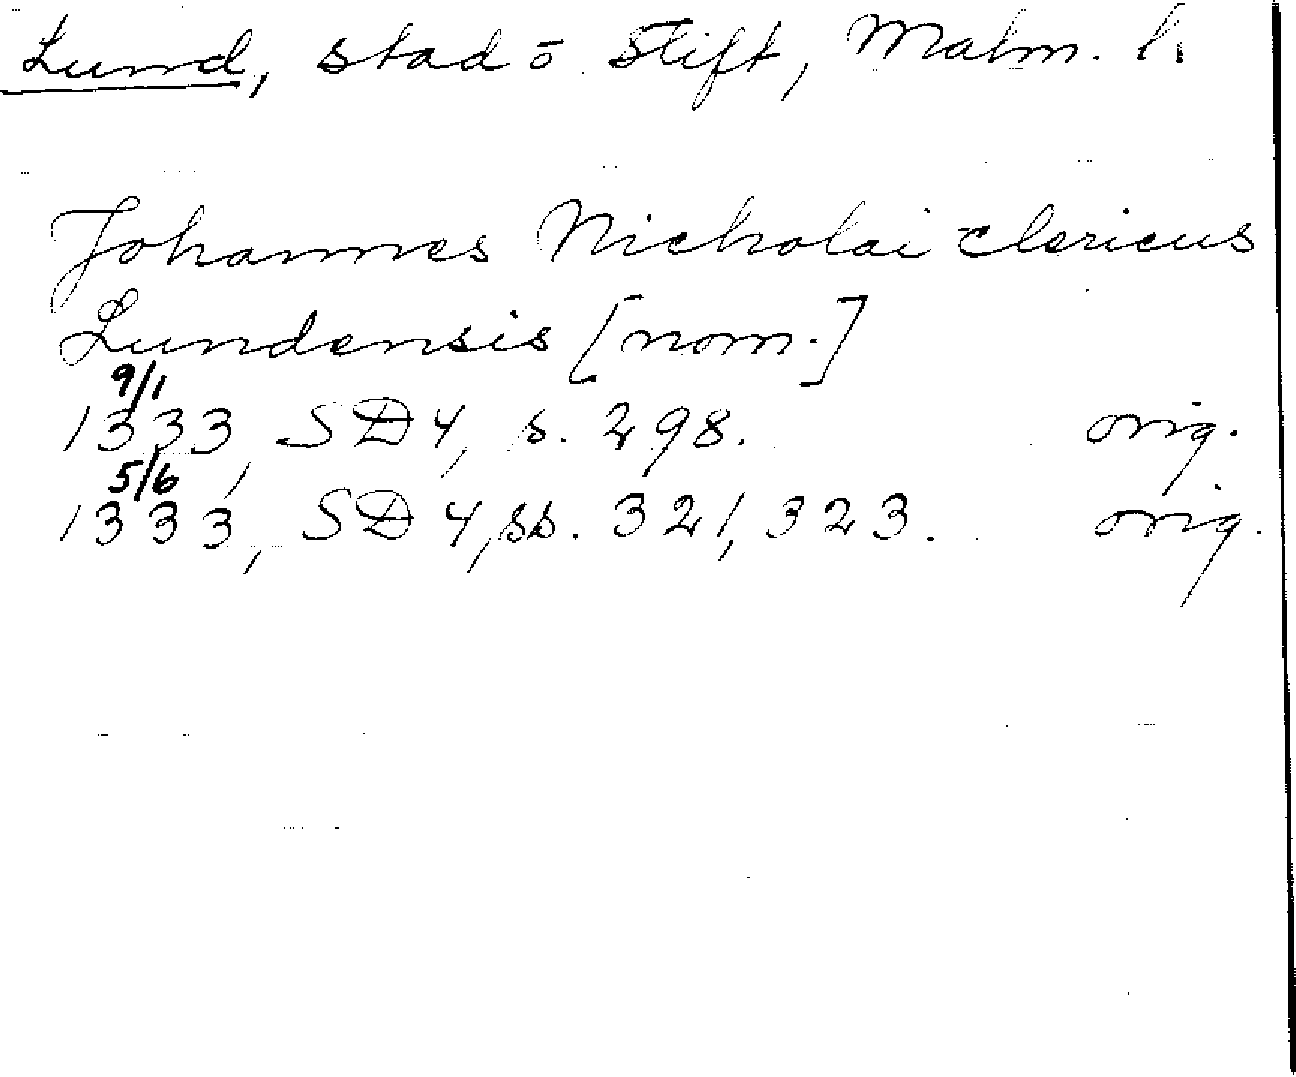 Lund, stad o. Stift, Malm. l.
Johannes Nicholai clericus
Lundensis [nom.]
9/1
1333, SD 4, s. 298. orig.
5/6
1333, SD 4, ss. 321, 323. orig.